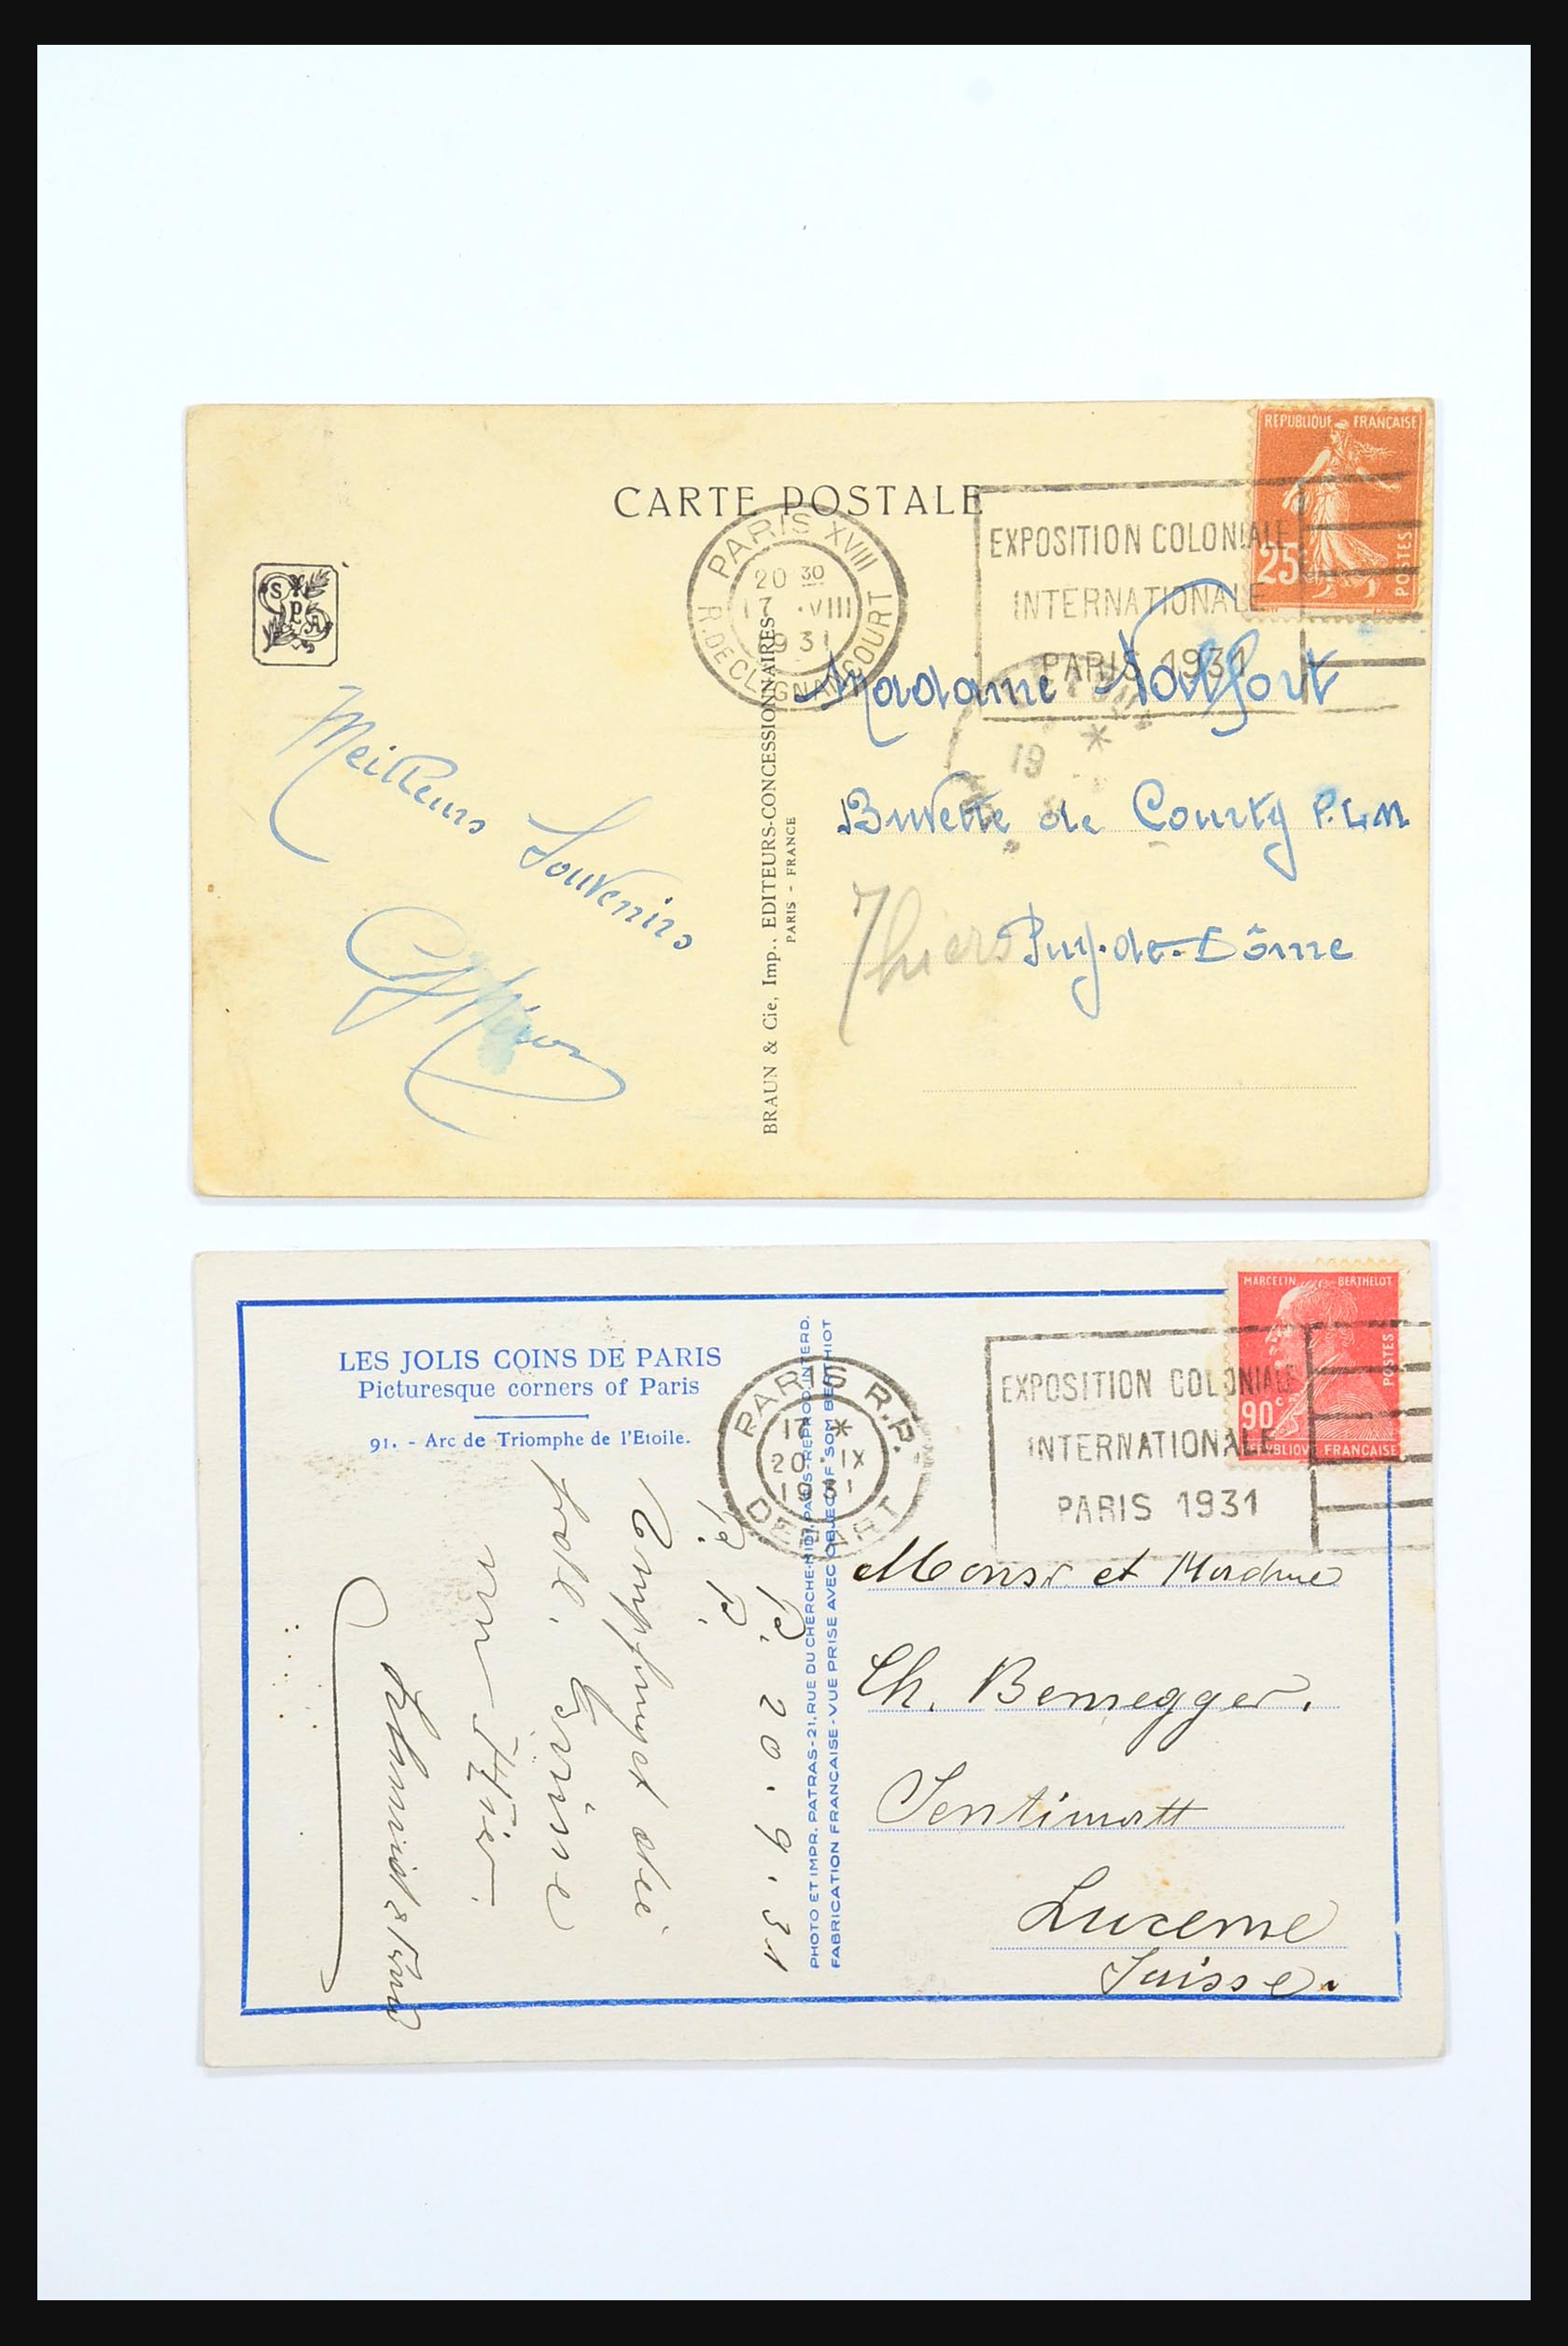 CARTE POSTALE
REPUBLIQUE FRANÇAISE
25
POSTES
PARIS XVIII
20 30
17 VIII
1931
R. DE CLIGNANCOURT
EXPOSITION COLONIALE
INTERNATIONALE
PARIS 1931
SPA
19 *
Madame
Buvette de Courty P.L.M
Thiers Puy-de-Dôme
Meilleurs Souvenirs
BRAUN & Cie, Imp., EDITEURS-CONCESSIONNAIRES
PARIS - FRANCE
LES JOLIS COINS DE PARIS
Picturesque corners of Paris
91. - Arc de Triomphe de l'Etoile.
MARCELIN BERTHELOT
90c
POSTES
REPUBLIQUE FRANÇAISE
PARIS R.P.
17 *
20 · IX
1931
DEPART
EXPOSITION COLONIALE
INTERNATIONALE
PARIS 1931
PHOTO ET IMPR. PATRAS - 21, RUE DU CHERCHE-MIDI, PARIS - REPROD. INTERD.
FABRICATION FRANÇAISE - VUE PRISE AVEC OBJECTIF SOM BERTHIOT
Monsr et Madme
Ch. Bennegger.
Sentimatt
Lucerne
Suisse.
P. 20.9.31
P. P.